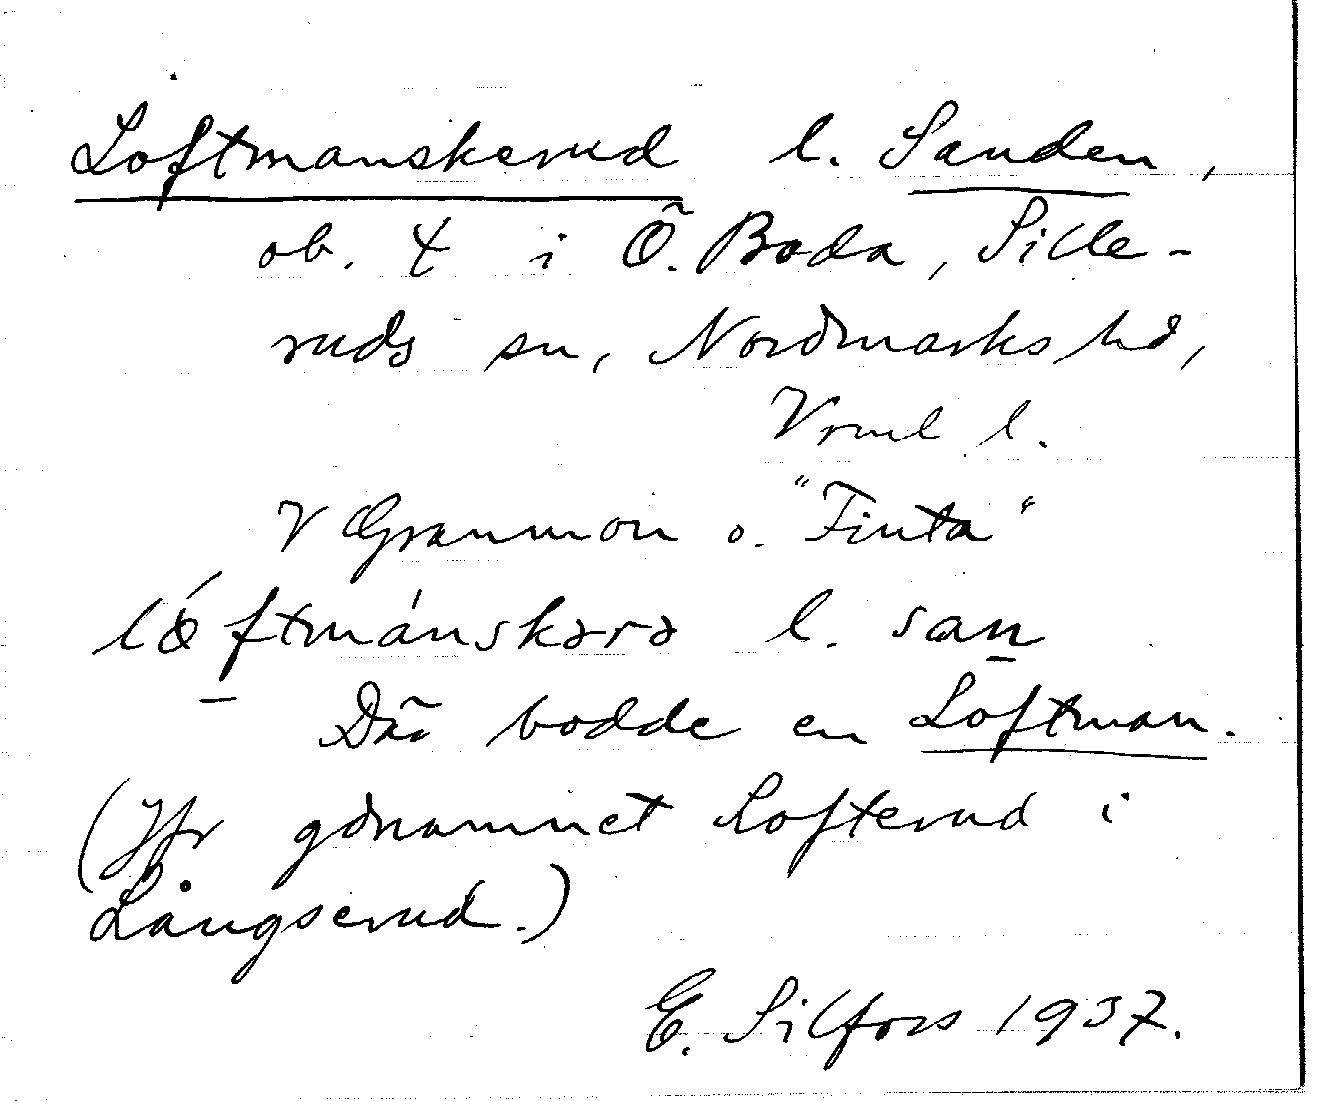 Loftmanskerud l. Sanden,
ob. 4 i Ö. Boda, Sille-
ruds sn, Nordmarks hd,
Vrml l.
V Granmon o. "Finta"
lǽftmánskərə l. san
Där bodde en Loftman.
(Jfr gdnamnet Lofterud i
Långserud.)
E. Silfors 1937.